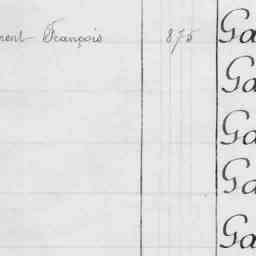 ment François 875 Ga
Ga
Ga
Ga
Ga